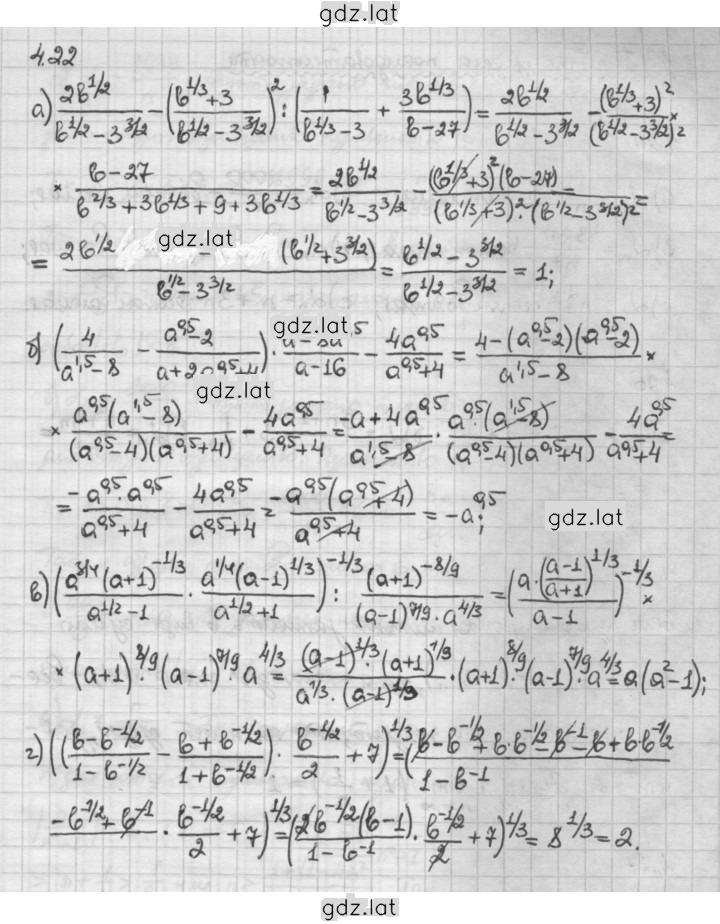 gdz.lat
4.22
а) 2b^{1/2}/(b^{1/2} - 3^{3/2}) - ((b^{1/3} + 3)/(b^{1/2} - 3^{3/2}))^2 : (1/(b^{1/3} - 3) + 3b^{1/3}/(b - 27)) = 2b^{1/2}/(b^{1/2} - 3^{3/2}) - (b^{1/3} + 3)^2/(b^{1/2} - 3^{3/2})^2 ×
× (b - 27)/(b^{2/3} + 3b^{1/3} + 9 + 3b^{1/3}) = 2b^{1/2}/(b^{1/2} - 3^{3/2}) - (b^{1/3} + 3)^2 (b - 27)/((b^{1/3} + 3)^2 · (b^{1/2} - 3^{3/2})^2) =
gdz.lat
= (2b^{1/2} - (b^{1/2} + 3^{3/2}))/(b^{1/2} - 3^{3/2}) = (b^{1/2} - 3^{3/2})/(b^{1/2} - 3^{3/2}) = 1;
gdz.lat
б) (4/(a^{1,5} - 8) - (a^{0,5} - 2)/(a + 2a^{0,5} + 4)) · /(a - 16) - 4a^{0,5}/(a^{0,5} + 4) = (4 - (a^{0,5} - 2)(a^{0,5} - 2))/(a^{1,5} - 8) ×
gdz.lat
× a^{0,5}(a^{1,5} - 8)/((a^{0,5} - 4)(a^{0,5} + 4)) - 4a^{0,5}/(a^{0,5} + 4) = (-a + 4a^{0,5})/(a^{1,5} - 8) · a^{0,5}(a^{1,5} - 8)/((a^{0,5} - 4)(a^{0,5} + 4)) - 4a^{0,5}/(a^{0,5} + 4) =
= -a^{0,5} · a^{0,5}/(a^{0,5} + 4) - 4a^{0,5}/(a^{0,5} + 4) = -a^{0,5}(a^{0,5} + 4)/(a^{0,5} + 4) = -a^{0,5};
gdz.lat
в) (a^{3/4}(a+1)^{-1/3}/(a^{1/2} - 1) · a^{1/4}(a-1)^{1/3}/(a^{1/2} + 1))^{-1/3} : (a+1)^{-8/9}/((a-1)^{7/9} · a^{4/3}) = (a · ((a-1)/(a+1))^{1/3}/(a-1))^{-1/3} ×
× (a+1)^{8/9} · (a-1)^{7/9} · a^{4/3} = (a-1)^{1/3} · (a+1)^{1/9}/(a^{1/3} · (a-1)^{1/9}) · (a+1)^{8/9} · (a-1)^{7/9} · a^{4/3} = a(a^2 - 1);
г) (((b - b^{-1/2})/(1 - b^{-1/2}) - (b + b^{-1/2})/(1 + b^{-1/2})) · b^{-1/2}/2 + 7)^{1/3} = ((b - b^{-1/2} + b·b^{-1/2} - b^{-1} - b + b·b^{-1/2}/(1 - b^{-1})
-b^{-1/2} + b^{-1} · b^{-1/2}/2 + 7)^{1/3} = (2b^{-1/2}(b - 1)/(1 - b^{-1}) · b^{-1/2}/2 + 7)^{1/3} = 8^{1/3} = 2.
gdz.lat